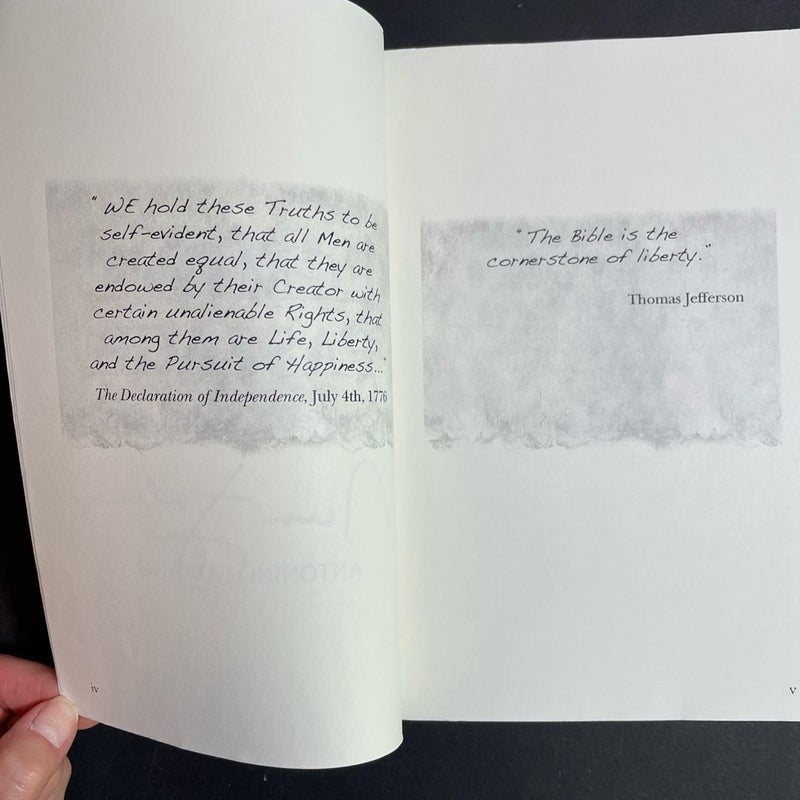 " WE hold these Truths to be
self-evident, that all Men are
created equal, that they are
endowed by their Creator with
certain unalienable Rights, that
among them are Life, Liberty,
and the Pursuit of Happiness..."
The Declaration of Independence, July 4th, 1776
ANTONINO
iv
" The Bible is the
cornerstone of liberty."
Thomas Jefferson
v